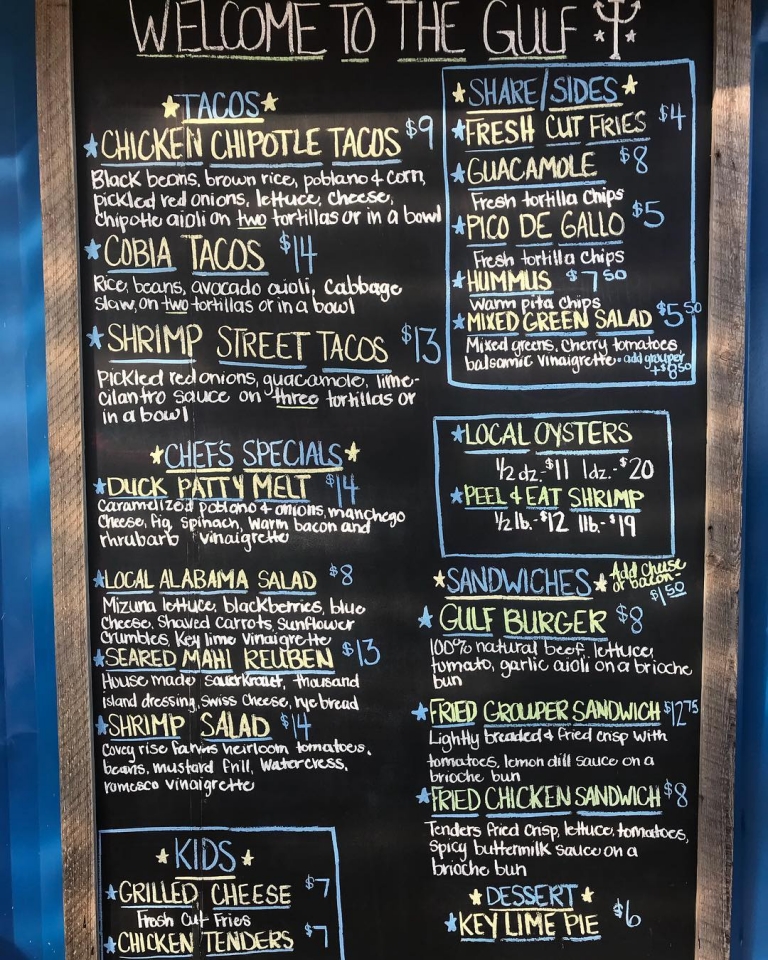 WELCOME TO THE GULF
TACOS
CHICKEN CHIPOTLE TACOS $9
Black beans, brown rice, poblano & corn,
pickled red onions, lettuce, cheese,
Chipotle aioli on two tortillas or in a bowl
COBIA TACOS $14
Rice, beans, avocado aioli, Cabbage
slaw, on two tortillas or in a bowl
SHRIMP STREET TACOS $13
Pickled red onions, guacamole, lime-
cilantro sauce on three tortillas or
in a bowl
CHEF'S SPECIALS
DUCK PATTY MELT $14
Caramelized poblano & onions, manchego
Cheese, fig, spinach, warm bacon and
rhrubarb vinaigrette
LOCAL ALABAMA SALAD $8
Mizuna lettuce, blackberries, blue
Cheese, Shaved Carrots, Sunflower
Crumbles, Key lime Vinaigrette
SEARED MAHI REUBEN $13
House made Sauerkraut, thousand
Island dressing, Swiss Cheese, rye bread
SHRIMP SALAD $14
Covey rise farms heirloom tomatoes,
beans, mustard frill, Watercress,
romesco vinaigrette
KIDS
GRILLED CHEESE $7
Fresh Cut Fries
CHICKEN TENDERS $7
SHARE/SIDES
FRESH CUT FRIES $4
GUACAMOLE $8
Fresh tortilla Chips
PICO DE GALLO $5
Fresh tortilla chips
HUMMUS $7 50
warm pita chips
MIXED GREEN SALAD $5 50
Mixed greens, cherry tomatoes,
balsamic vinaigrette • add grouper
+$8 50
LOCAL OYSTERS
1/2 dz.-$11 1dz.-$20
PEEL & EAT SHRIMP
1/2 lb.-$12 1lb.-$19
SANDWICHES Add Cheese
or bacon-
$1 50
GULF BURGER $8
100% natural beef, lettuce,
tomato, garlic aioli on a brioche
bun
FRIED GROUPER SANDWICH $12 75
Lightly breaded & fried crisp with
tomatoes, lemon dill sauce on a
brioche bun
FRIED CHICKEN SANDWICH $8
Tenders fried crisp, lettuce, tomatoes,
spicy buttermilk sauce on a
brioche bun
DESSERT
KEY LIME PIE $6